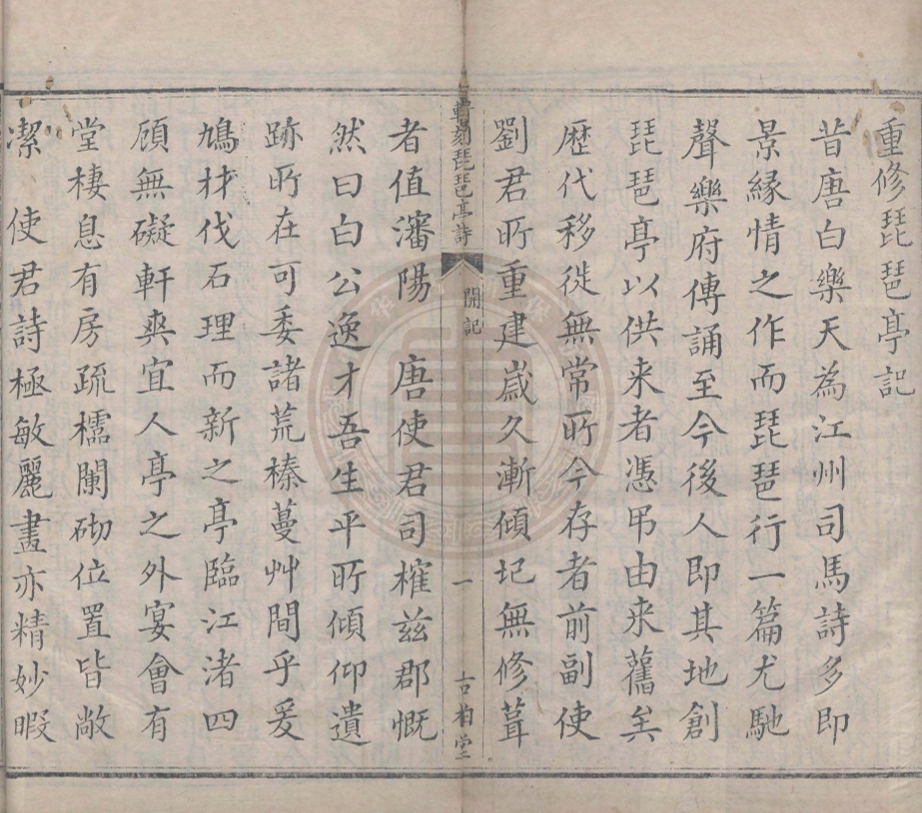 重修琵琶亭記
昔唐白樂天為江州司馬詩多即
景緣情之作而琵琶行一篇尤馳
聲樂府傳誦至今後人即其地創
琵琶亭以供来者憑吊由来舊矣
歷代移徙無常所今存者前副使
劉君所重建歲久漸傾圮無修葺
輯刻琵琶亭詩
開記
一
古栢堂
者值瀋陽 唐使君司榷兹郡慨
然曰白公逸才吾生平所傾仰遺
跡所在可委諸荒榛蔓艸間乎爰
鳩材伐石理而新之亭臨江渚四
顧無礙軒爽宜人亭之外宴會有
堂棲息有房疏櫺闌砌位置皆敞
潔 使君詩極敏麗畫亦精妙暇